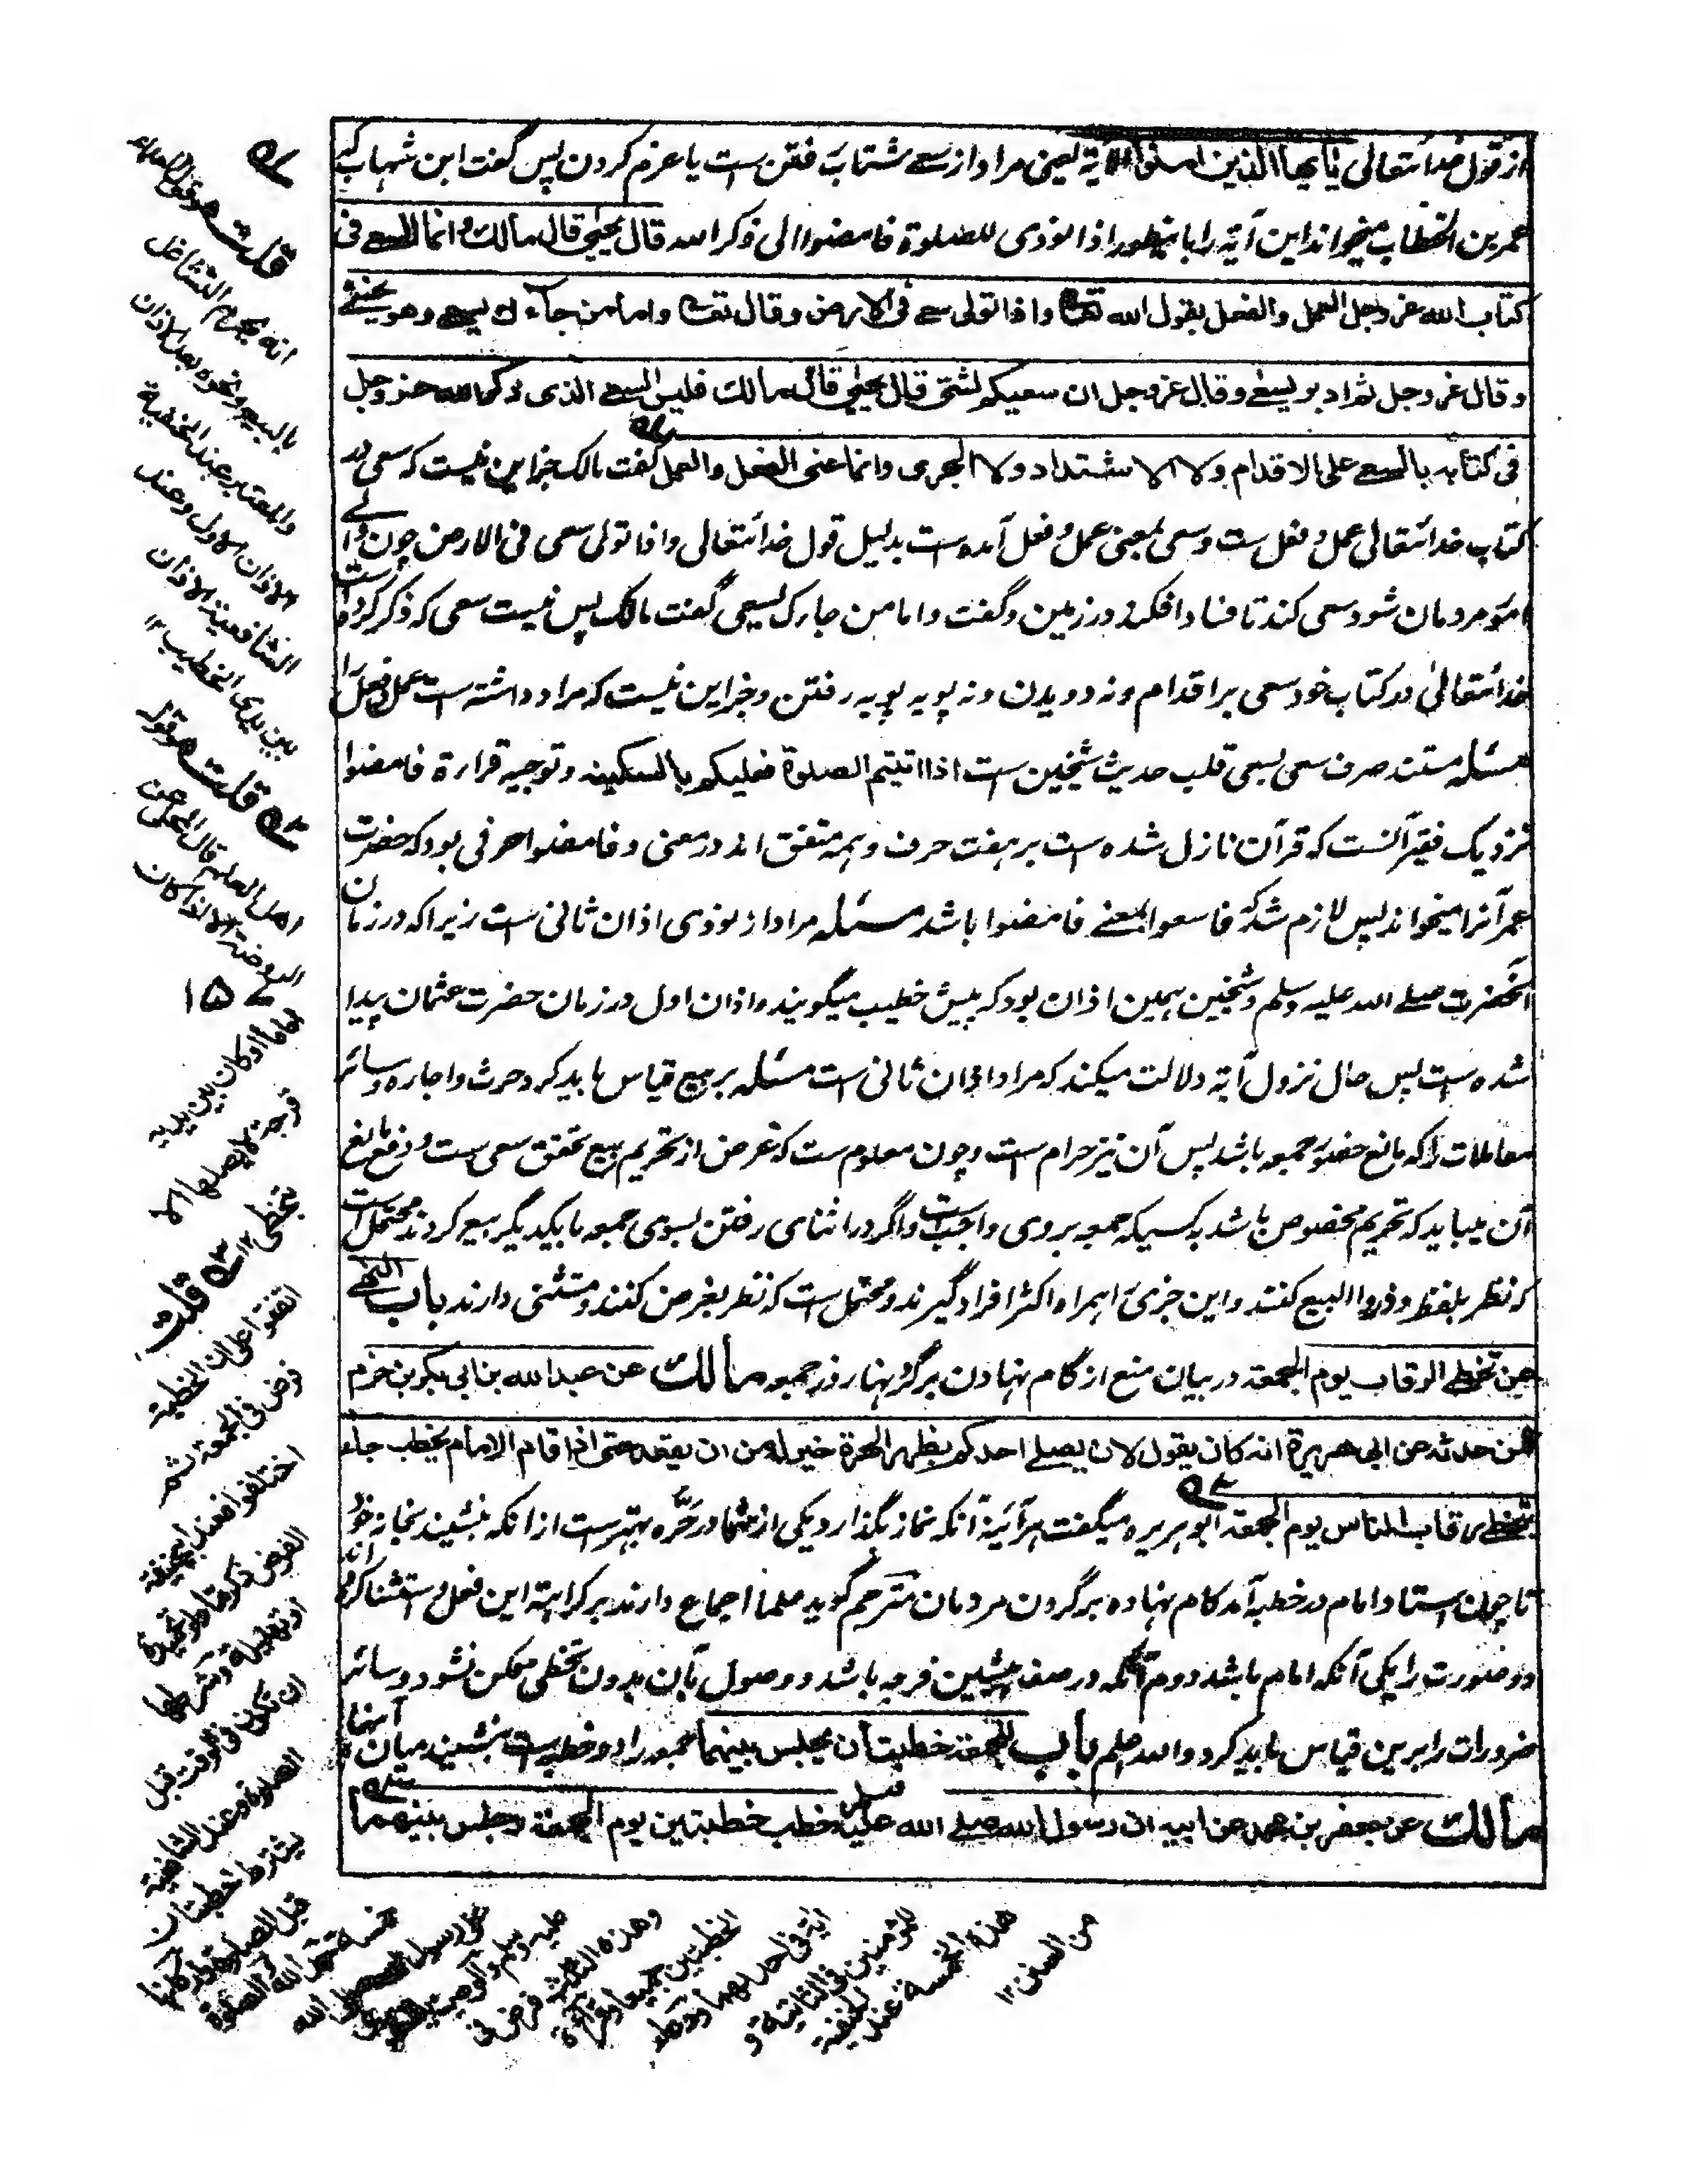 از قول خدائتعالی یا ایها الذین امنوا الایة یعنی مراد از سعے شتاب رفتن ست یا عزم کردن پس گفت ابن شهاب که
عمر بن الخطاب میخواند این آیة را باینطور اذا نودی للصلوة فامضوا الی ذکر الله قال یحیی قال مالك وانما السعے فی
کتاب الله عز وجل العمل والفعل بقول الله تعالی واذا تولی سعے فی الارض وقال تعالی واما من جاءك یسعے وهو یخشے
وقال عز وجل ثم ادبر یسعے وقال عز وجل ان سعیکم لشتی قال یحیی قال مالك فلیس السعے الذی ذکر الله عز وجل
فی کتابه بالسعے علی الاقدام ولا الاشتداد ولا الجری وانما عنی الفعل والعمل گفت مالک جز این نیست که سعی در
کتاب خدائتعالی عمل و فعل ست وسعی بمعنی عمل و فعل آمده است بدلیل قول خدائتعالی واذا تولی سعی فی الارض چون والے
امور مردمان شود سعی کند تا فساد افکند در زمین وگفت واما من جاءک یسعی گفت مالک پس نیست سعی که ذکر کرده است
خدائتعالیٰ در کتاب خود سعی بر اقدام ونه دویدن ونه پویه پویه رفتن وجز این نیست که مراد داشته است عمل و فعل را
مسئله مستند صرف سعی بسعی قلب حدیث شیخین ست اذا اتیتم الصلوة فعلیکم بالسکینه وتوجیه قراءة فامضوا
نزدیک فقیر آنست که قرآن نازل شده است بر هفت حرف وهمه متفق اند در معنی وفامضوا حرفی بود که حضرت
عمر آنرا میخواند پس لازم شد که فاسعوا بمعنے فامضوا باشد مسئله مراد از نودی اذان ثانی ست زیرا که در زمان
آنحضرت صلے الله علیه وسلم وشیخین همین اذان بود که پیش خطیب میگویند واذان اول در زمان حضرت عثمان پیدا
شده است پس حال نزول آیة دلالت میکند که مراد اذان ثانی ست مسئله بر بیع قیاس باید کرد حرث واجاره وسائر
معاملات را که مانع حضور جمعه باشد پس آن نیز حرام است وچون معلوم ست که غرض از تحریم بیع تحقق سعی ست ودفع مانع
آن میباید که تحریم مخصوص باشد بکسیکه جمعه بروی واجب است واگر در اثنای رفتن بسوی جمعه بایکدیگر بیع کردند محتمل است
که نظر بلفظ وذروا البیع کنند واین جزئی را همراه اکثر افراد گیرند ومحتمل ست که نظر بغرض کنند ومستثنی دارند باب النهے
عن تخطے الرقاب یوم الجمعة در بیان منع از گام نهادن بر گردنها روز جمعه مالك عن عبد الله بن ابی بکر بن حزم
عمن حدثه عن ابی هریرة انه کان یقول لان یصلے احدکم بظهر الحرة خیر له من ان یقعد حتی اذا قام الامام یخطب جاء
یتخطے رقاب الناس یوم الجمعة ابو هریره میگفت هر آئینه آنکه نماز بگذارد یکی از شما در حَرَّه بهتر ست از انکه بنشیند بخانه خود
تا چون استاد امام در خطبه آمد گام نهاده بر گردن مردمان مترجم گوید علما اجماع دارند بر کراهة این فعل واستثنا کرده اند
دو صورت را یکی آنکه امام باشد دوم آنکه در صف پیشین فرجه باشد ووصول بآن بدون تخطی ممکن نشود وسائر
ضرورات را برین قیاس باید کرد والله اعلم باب للجمعة خطبتان یجلس بینهما جمعه را دو خطبه است بنشیند میان آنها
مالك عن جعفر بن محمد عن ابیه ان رسول الله صلے الله علیه وسلم خطب خطبتین یوم الجمعة وجلس بینهما
قلت هو قول العلماء
انه یحرم التشاغل
بالبیع ونحوه بعد الاذان
والمعتبر عند الحنفیة
الاذان الاول وعند
الشافعیة الاذان
بین یدی الخطیب ١٢
قلت هو قول
اهل العلم قال المحلی عن
الروضة الا اذا کان
اماما او کان بین یدیه
فرجة لا یصلها الا
بتخطی ١٢
قلت
اتفقوا علی ان الخطبة
فرض فی الجمعة ثم
اختلفوا فعند ابی حنیفة
الفرض ذکر ما طو تحمیدة
او تهلیلة وشرطها
ان تکون فی الوقت قبل
الصلوة وعند الشافعیة
یشترط خطبتان
قبل الصلوة وارکانها
خمسة حمد الله والصلوة
علی رسول الله صلی الله
علیه وسلم والوصیة بتقوی
وهذه الثلث فرض فی
الخطبتین جمیعا وقراءة
آیة فی احدیهما والدعاء
للمؤمنین فی الثانیة و
هذه الخمسة عند الحنفیة
من السنن ١٢